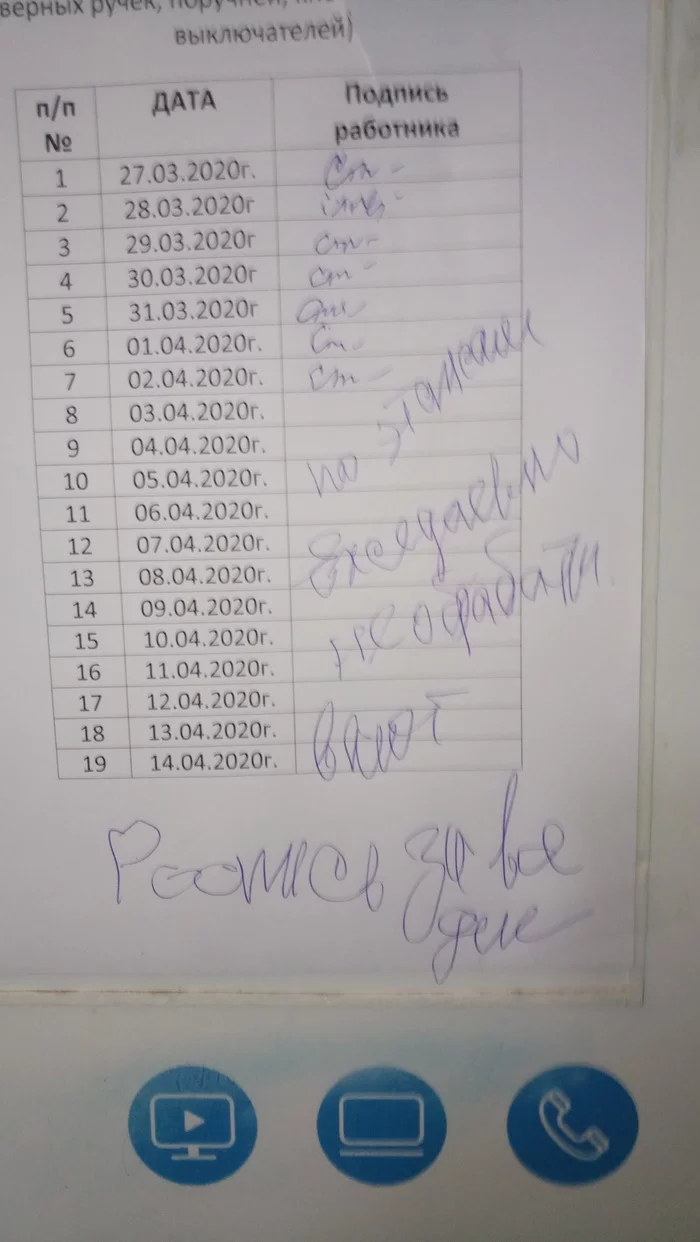 верных ручек, поручней,
выключателей)
п/п № ДАТА Подпись работника
1 27.03.2020г.
2 28.03.2020г
3 29.03.2020г
4 30.03.2020г
5 31.03.2020г
6 01.04.2020г.
7 02.04.2020г.
8 03.04.2020г.
9 04.04.2020г.
10 05.04.2020г.
11 06.04.2020г.
12 07.04.2020г.
13 08.04.2020г.
14 09.04.2020г.
15 10.04.2020г.
16 11.04.2020г.
17 12.04.2020г.
18 13.04.2020г.
19 14.04.2020г.
по этажам
Ежедневно
не обрабаты
вают
Роспись за все
дни